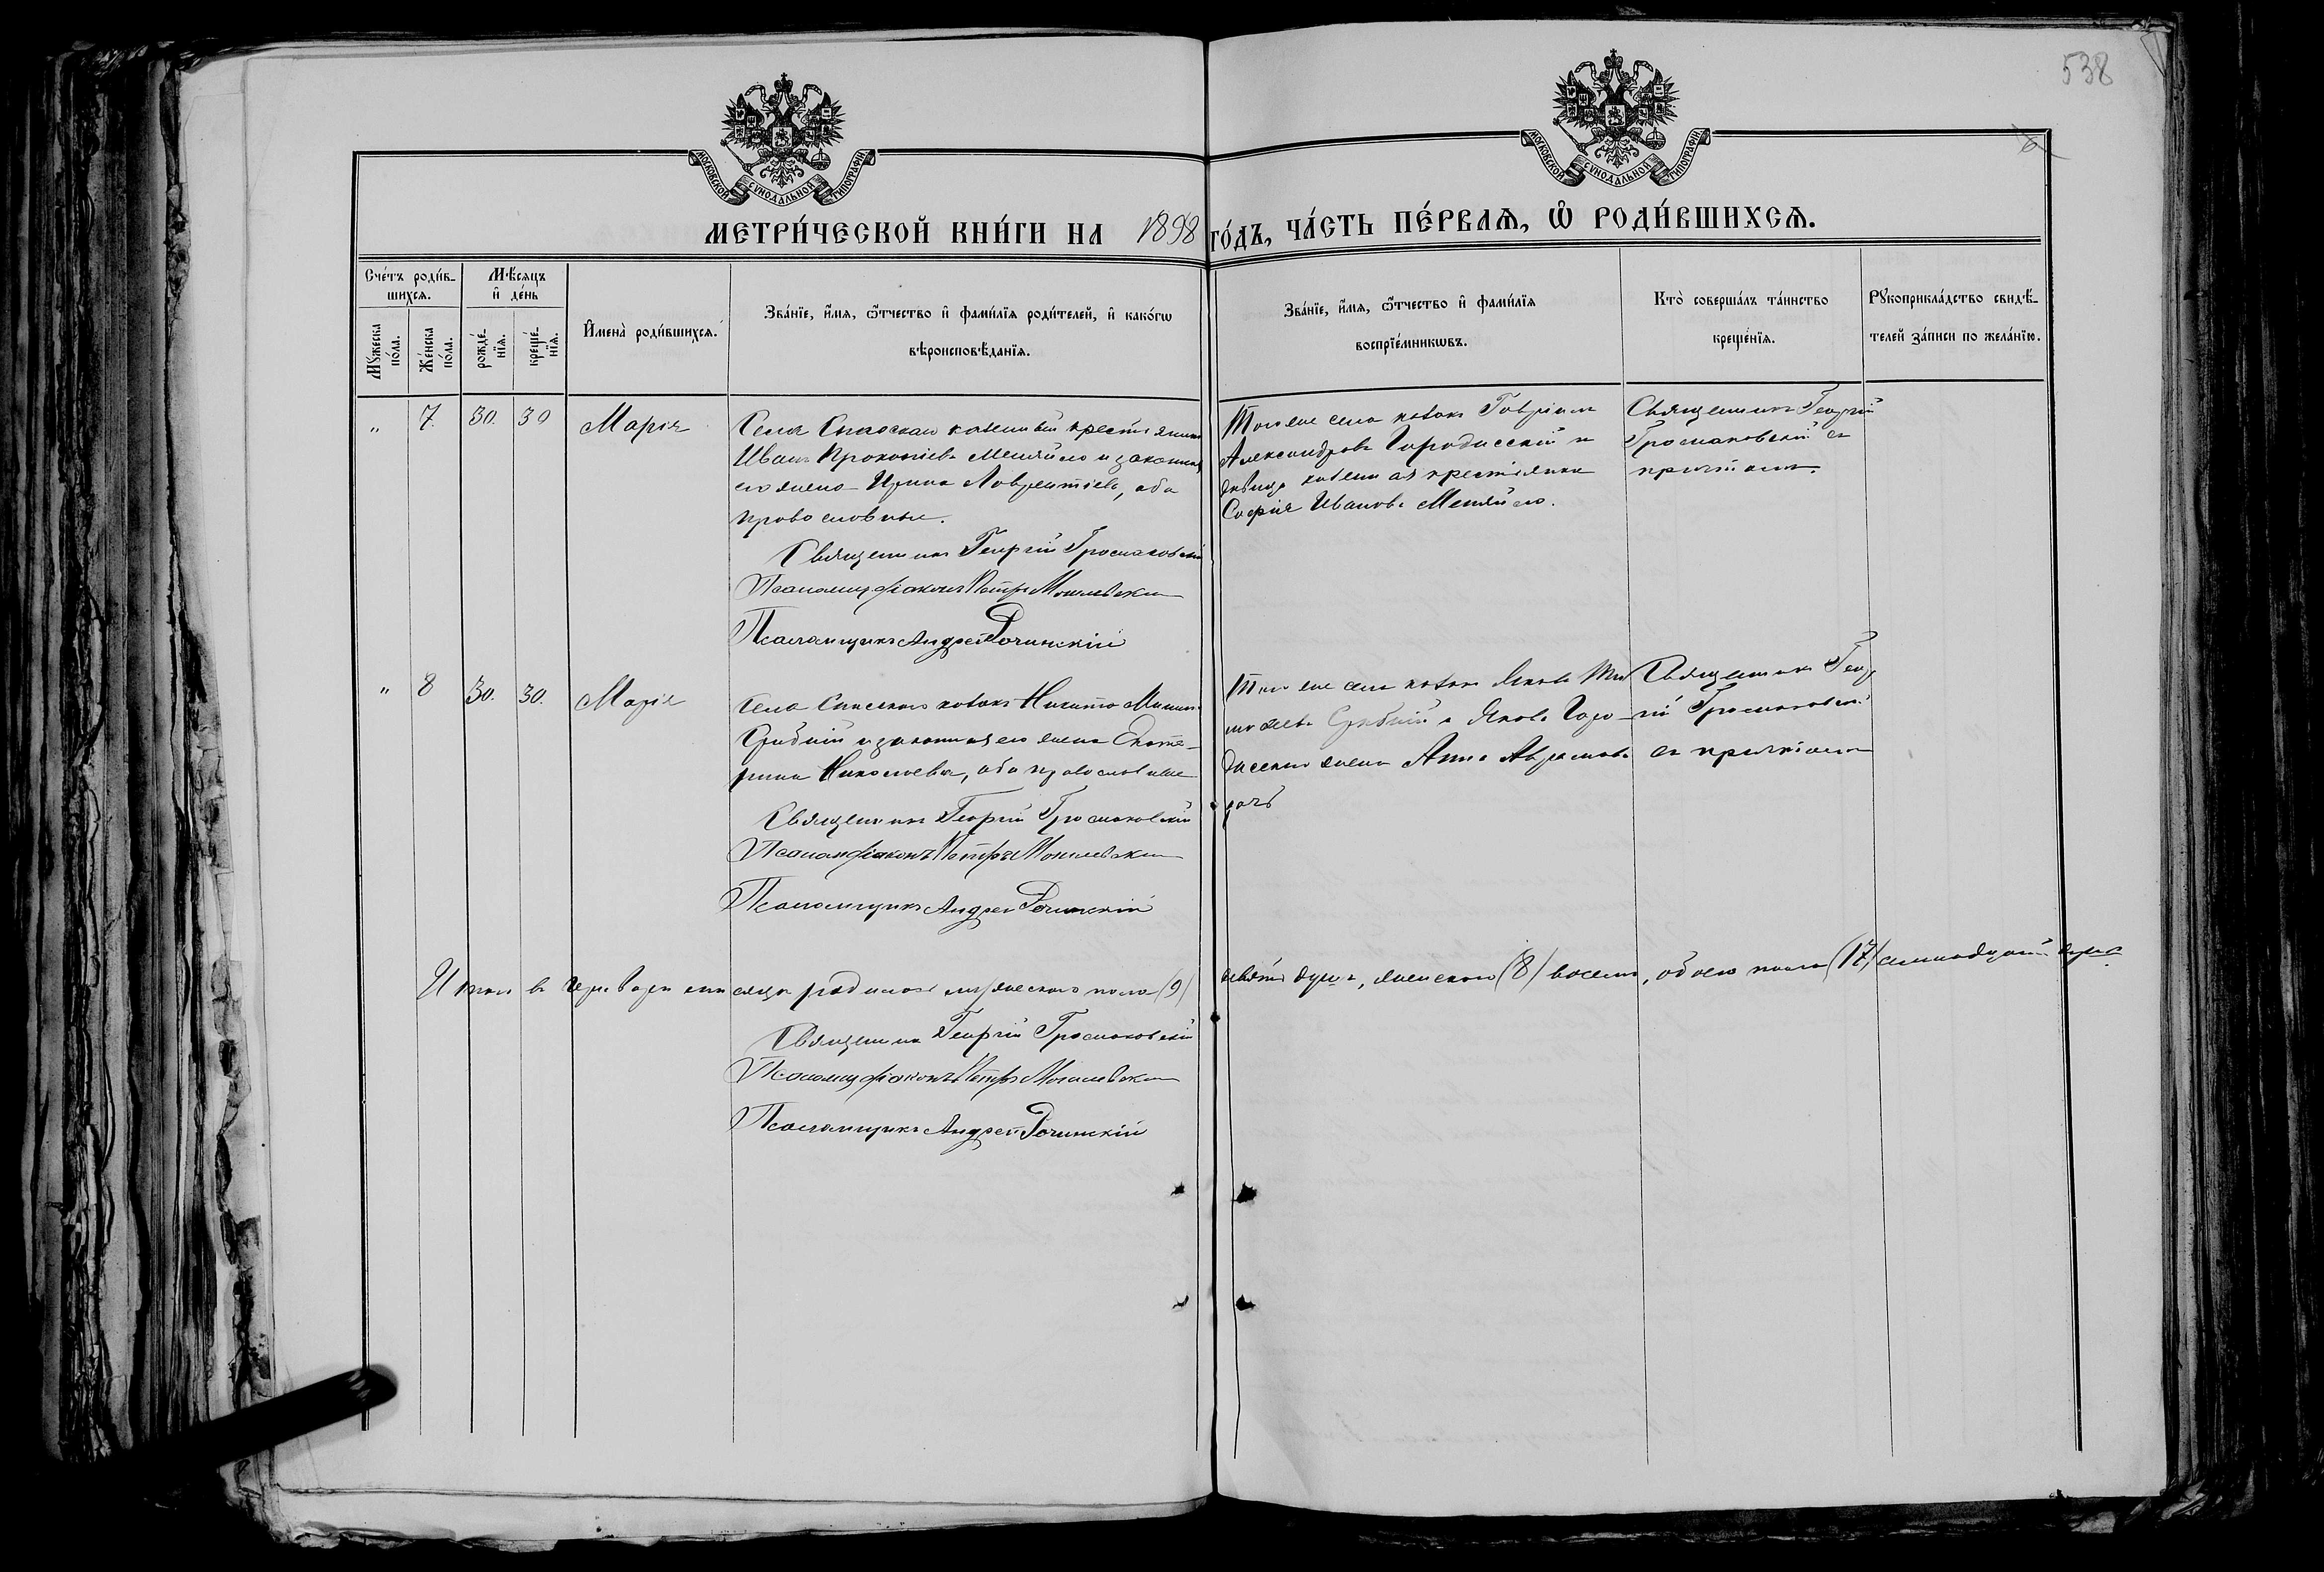 538
6
МОСКОВСКОЙ СѴНОДАЛЬНОЙ ТИПОГРАФІИ
МОСКОВСКОЙ СѴНОДАЛЬНОЙ ТИПОГРАФІИ
МЕТРИ́ЧЕСКОЙ КНИ́ГИ НА 1898 ГО́ДЪ, ЧА́СТЬ ПЕ́РВАѦ, Ѽ РОДИ́ВШИХСѦ.
Сче́тъ роди́в-
шихсѧ.
Мꙋ́жеска по́ла.
Же́нска по́ла.
Мѣ́сѧцъ
и҆ де́нь
рожде́-
нїѧ.
креще́-
нїѧ.
И҆мена̀ роди́вшихсѧ.
Зва́нїе, и҆́мѧ, ѻ҆́тчество и҆ фами́лїѧ роди́телей, и҆ како́гѡ
вѣроисповѣ́данїѧ.
Зва́нїе, и҆́мѧ, ѻ҆́тчество и҆ фами́лїѧ
воспрїе́мникѡвъ.
Кто̀ соверша́лъ та́инство
креще́нїѧ.
Рꙋкоприкла́дство свидѣ́-
телей за́писи по жела́нїю.
" 7. 30. 30 Марія
Села Спаскаго казенный крестьянинъ
Иванъ Прокопіевъ Меняйло и законная
его жена Ирина Лаврентіева, оба
православные.
Священникъ Георгій Громаковскій
Псаломщ діаконъ Петръ Могилевскій
Псаломщикъ Андрей Рочинскій
Того же села козакъ Гавріилъ
Александровъ Городисскій и
дѣвица казенная крестьянка
Софія Иванова Меняйло.
Священникъ Георгій
Громаковскій съ
причтомъ.
" 8 30. 30. Марія
Села Спаскаго козакъ Никита Мининъ
Срибный и законная его жена Екате-
рина Николаева, оба православные
Священникъ Георгій Громаковскій
Псалом діаконъ Петръ Могилевскій
Псаломщикъ Андрей Рочинскій
Того же села козакъ Яковъ Ти
моѳеевъ Срибный и Якова Горо-
дисскаго жена Анна Авраамова
Священникъ Геор
гій Громаковскій
съ причтомъ
Итого въ Январѣ мѣсяцѣ родилось мужескаго пола (9) девять душъ, женскаго (8) восемь, обоего пола (17) семнадцать душъ
Священникъ Георгій Громаковскій
Псаломщ діаконъ Петръ Могилевскій
Псаломщикъ Андрей Рочинскій